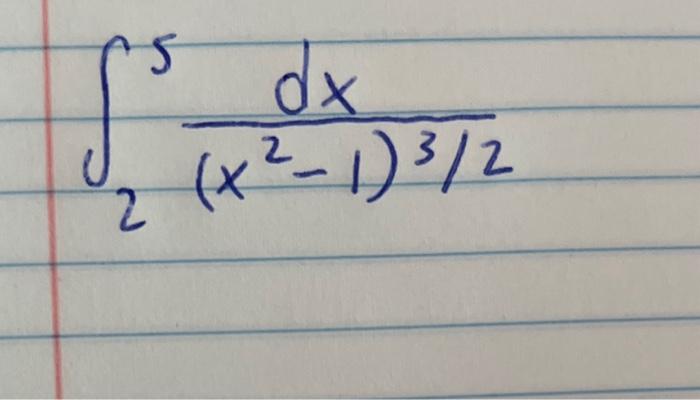 ∫₂⁵ dx / (x² - 1)^3/2